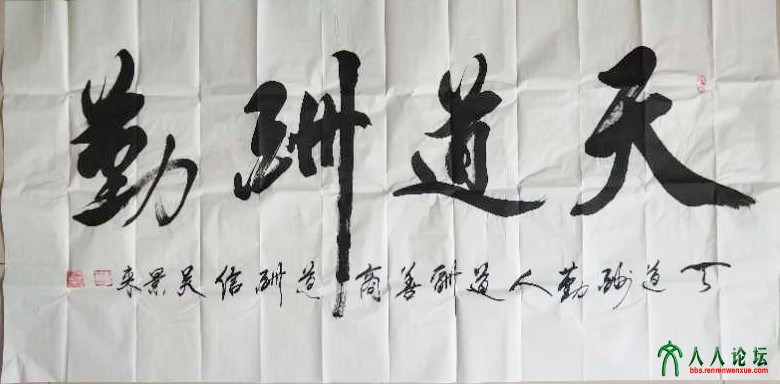 天道酬勤
天道酬勤人道酬善商道酬信吴景来
人人论坛
bbs.renrenwenxue.com